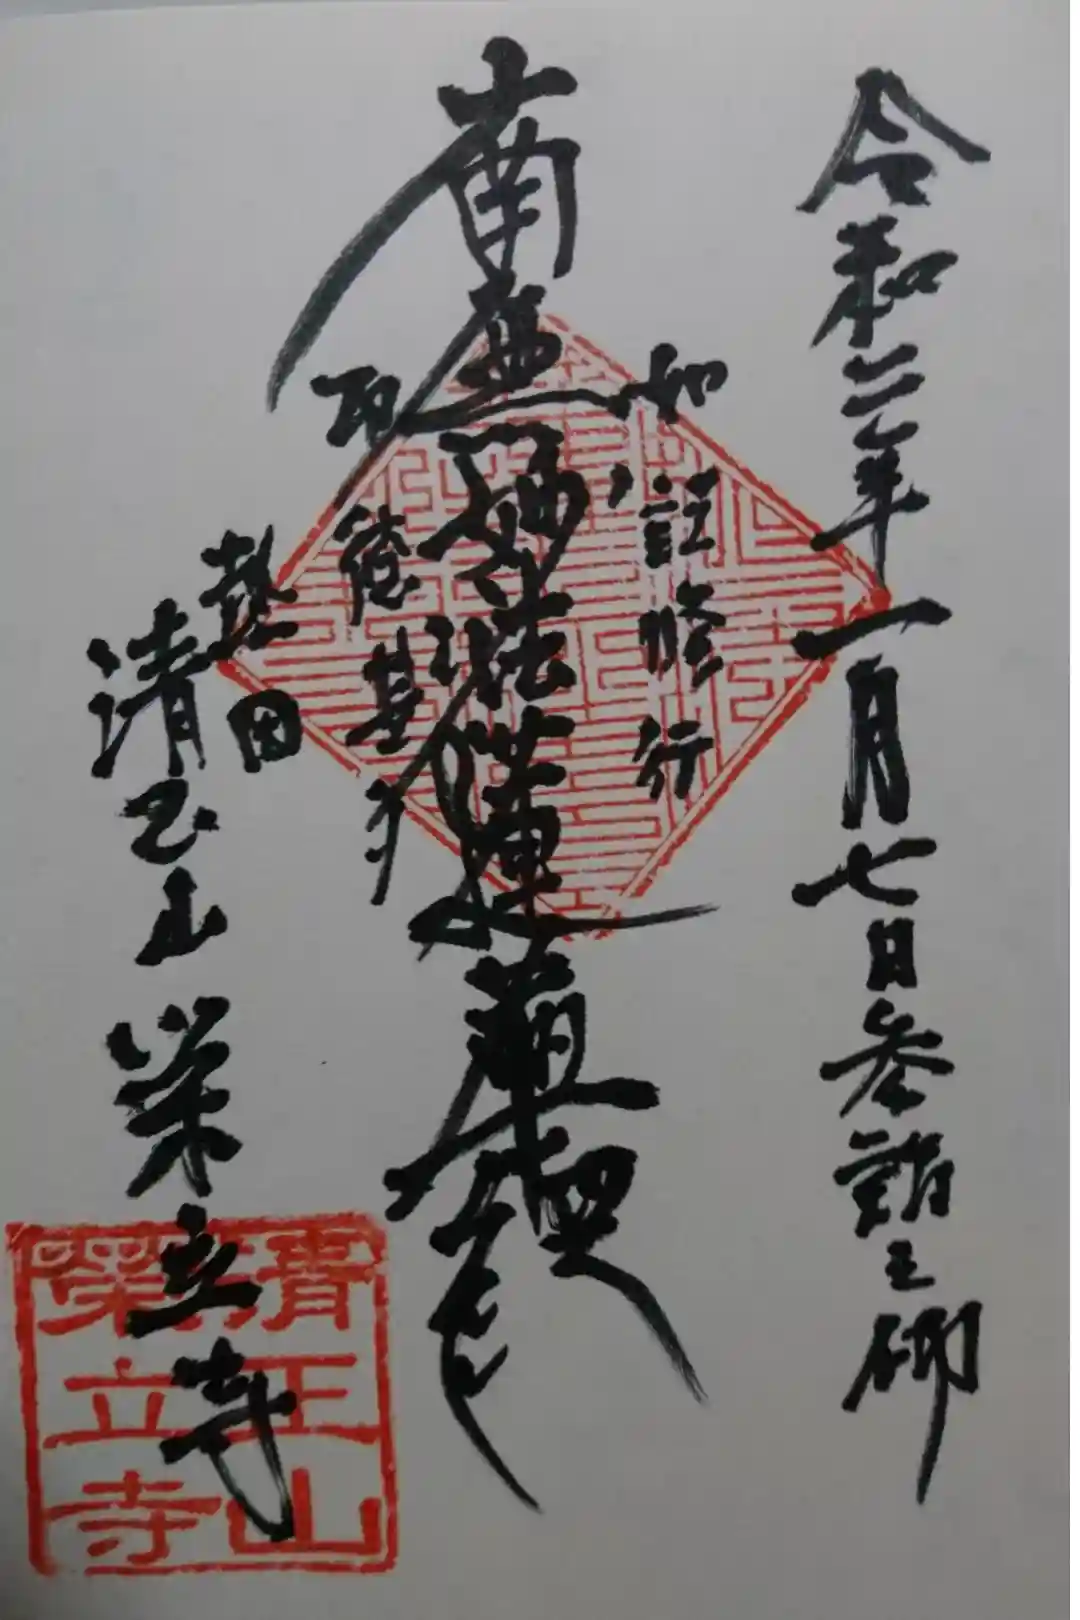 令和二年一月七日参詣之砌
如説修行
南無妙法蓮華経
功徳甚多
熱田
清正山 栄立寺
清正山
栄立寺